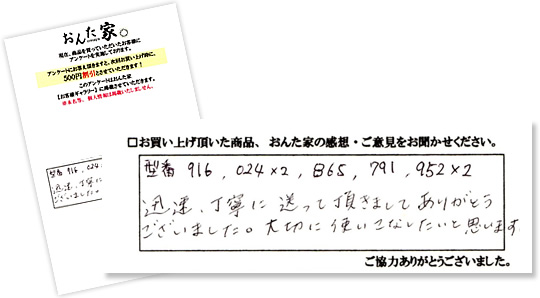 おんた家。
現在、商品を買っていただいたお客様に
アンケートを実施しております。
アンケートにお答え頂きますと、次回お買い上げ時に、
500円割引とさせていただきます!
このアンケートはおんた家
【お客様ギャラリー】に掲載させていただきます。
※お名前、個人情報は掲載いたしません。
型番 916, 024×2
迅速、丁寧に
ございました。
□お買い上げ頂いた商品、おんた家の感想・ご意見をお聞かせください。
型番 916, 024×2, B65, 791, 952×2
迅速、丁寧に送って頂きましてありがとう
ございました。大切に使いこなしたいと思います
ご協力ありがとうございました。